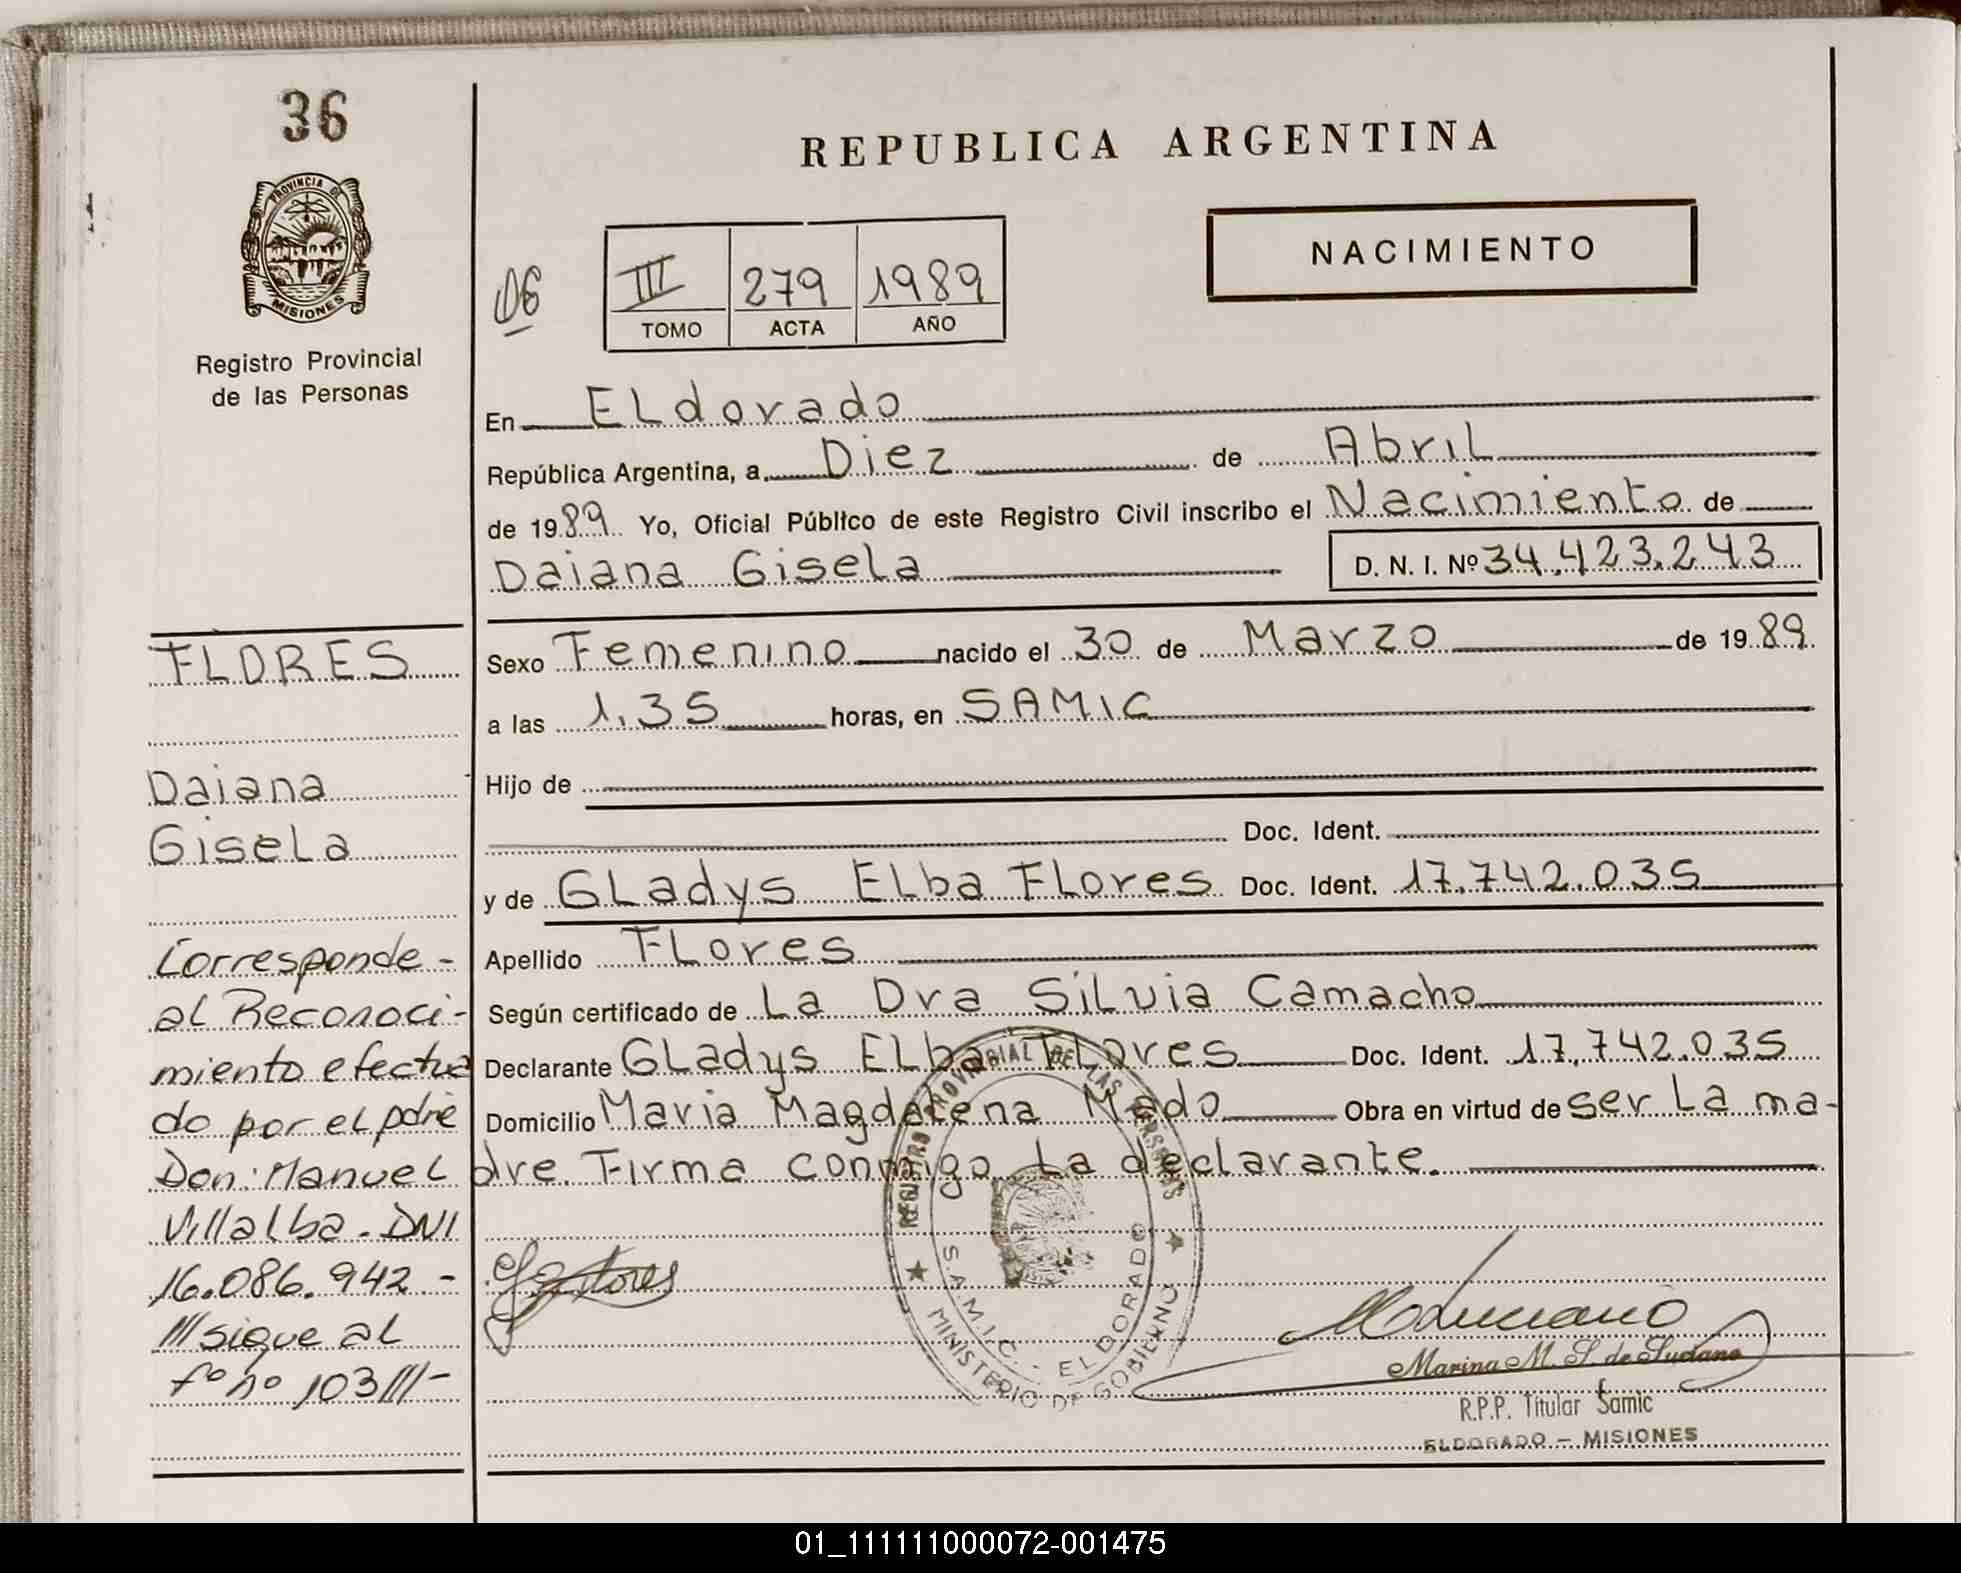 36
PROVINCIA DE
MISIONES
Registro Provincial
de las Personas
REPUBLICA ARGENTINA
NACIMIENTO
06
III 279 1989
TOMO ACTA AÑO
En Eldorado
República Argentina, a Diez de Abril
de 1989 Yo, Oficial Público de este Registro Civil inscribo el Nacimiento de
Daiana Gisela D. N. I. Nº 34.423.243
Sexo Femenino nacido el 30 de Marzo de 1989
a las 1.35 horas, en SAMIC
Hijo de
Doc. Ident.
y de Gladys Elba Flores Doc. Ident. 17.742.035
Apellido Flores
Según certificado de La Dra Silvia Camacho
Declarante Gladys Elba Flores Doc. Ident. 17.742.035
Domicilio Maria Magdalena Mado Obra en virtud de ser La ma-
dre. Firma conmigo La declarante.
FLORES
Daiana
Gisela
Corresponde -
al Reconoci-
miento efectua
do por el pdre
Don: Manuel
Villalba. DNI
16.086.942 -
///sigue al
fº nº 103///-
REGISTRO PROVINCIAL DE LAS PERSONAS
S.A.M.I.C. - ELDORADO
MINISTERIO DE GOBIERNO
Marina M. S. de Luciano
R.P.P. Titular Samic
ELDORADO - MISIONES
01_111111000072-001475